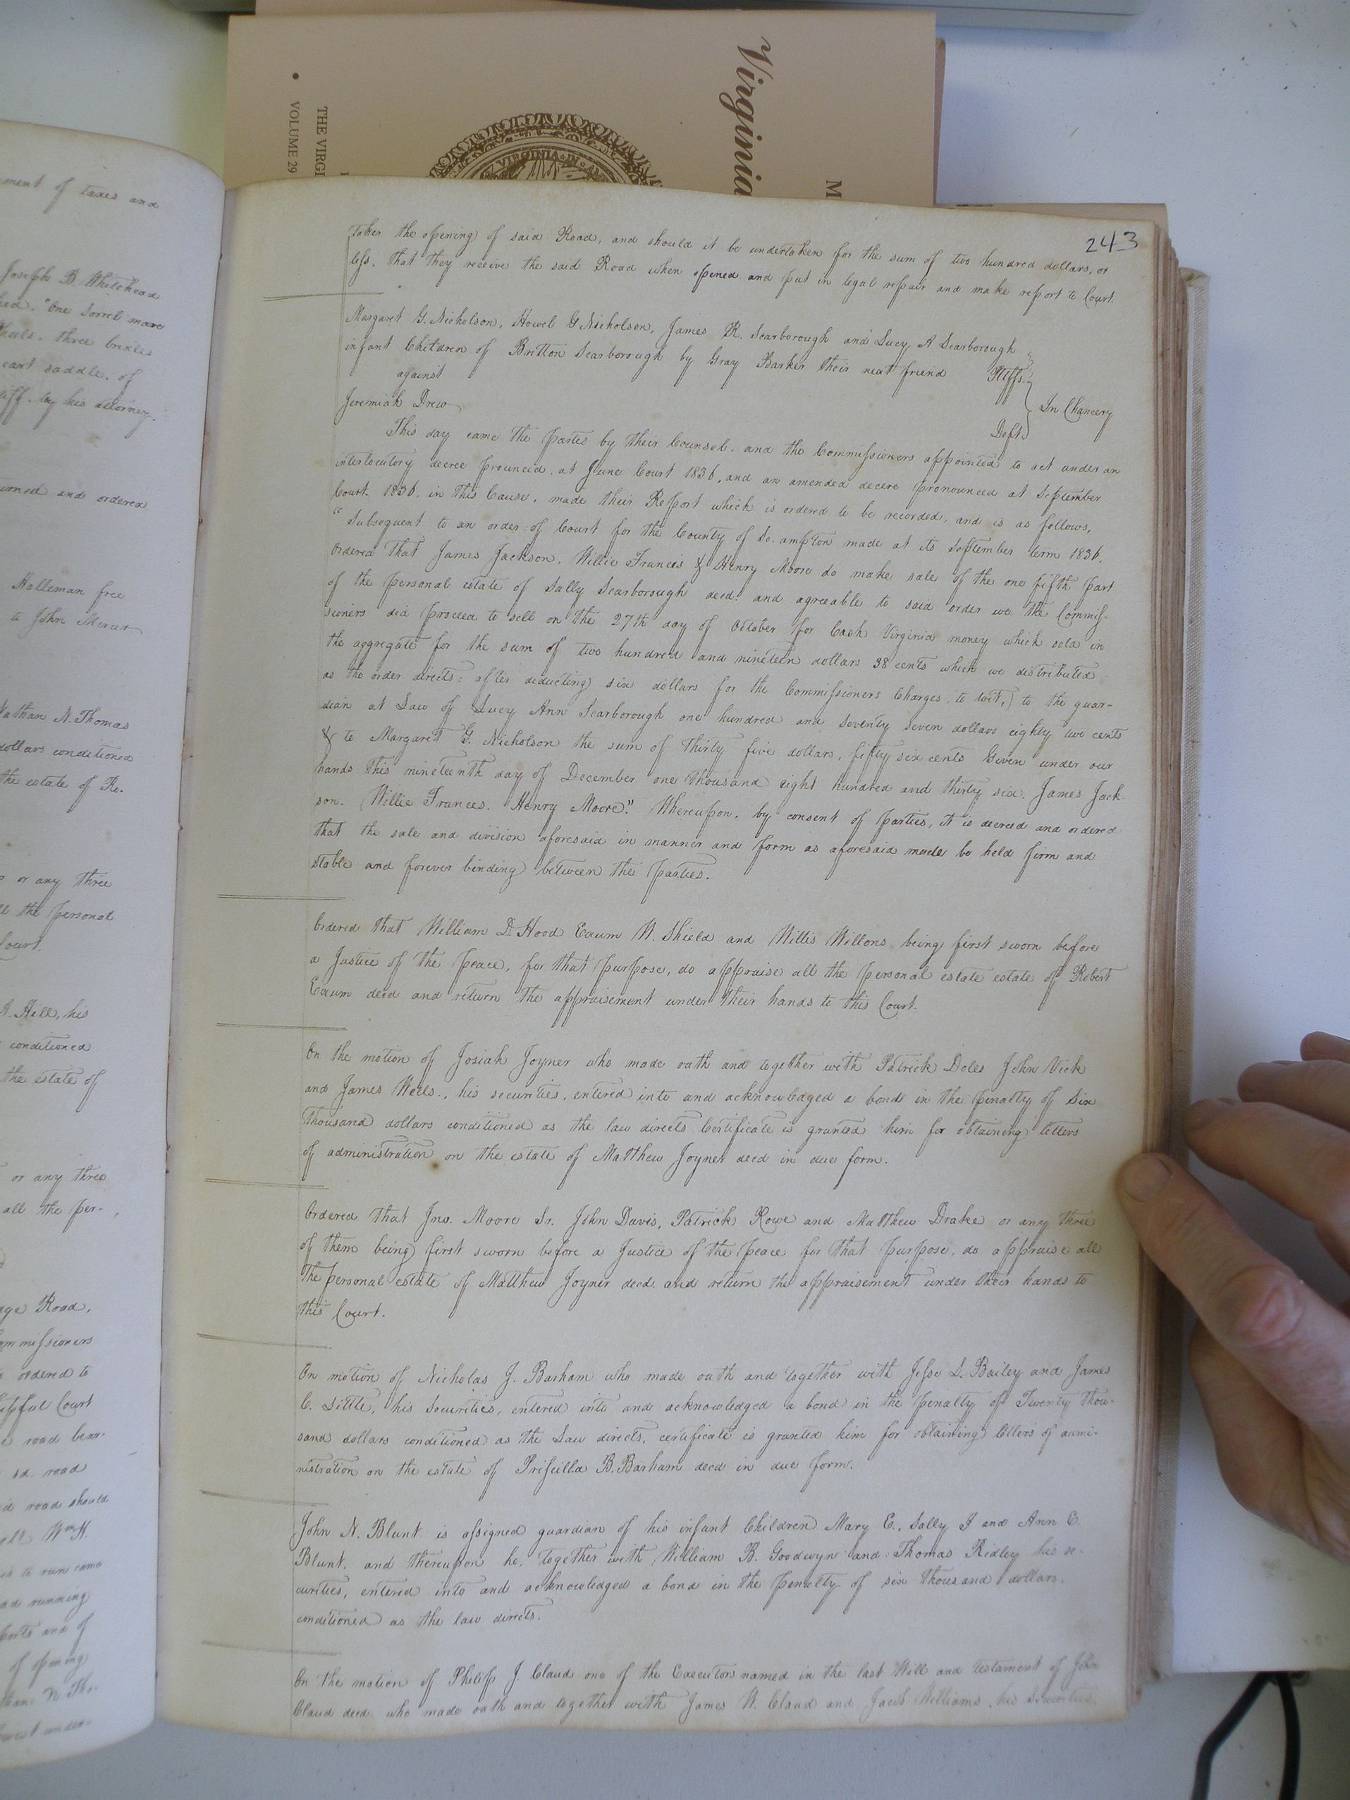 Virginia
M
THE VIRGI
VOLUME 29
VIRGINIA
ment of taxes and
Joseph B. Whitehead
One sorrel mare
three bridles
cart saddle, of
tiff. by his attorney.
and ordered
Holleman free
to John Mercer
Nathan N. Thomas
dollars conditioned
the estate of Re-
or any three
the personal
Court.
Hill, his
conditioned
the estate of
or any three
all the per-
age Road,
Commissioners
ordered to
Court
road
road should
Wm. H.
is to run
running
of
of opening
243
the opening of said Road, and should it be undertaken for the sum of two hundred dollars, or
less. That they receive the said Road when opened and put in legal repair and make report to Court.
Margaret G. Nicholson, Howel G Nicholson, James R. Scarborough and Lucy A Scarborough
infant Children of Britton Scarborough by Gray Barker their next friend Pltffs.
against
In Chancery
Jeremiah Drew
Deft.
This day came the parties by their Counsel. and the Commissioners appointed to act under an
interlocutory decree pronuncd. at June Court 1836, and an amended decree pronounced at September
Court. 1836. in this Cause, made their Report which is ordered to be recorded, and is as follows,
"Subsequent to an order of Court for the County of So. ampton made at its September term 1836.
Ordered that James Jackson, Willie Frances & Henry Moore do make sale of the one fifth part
of the personal estate of Sally Scarborough decd. and agreeable to said order we the Commis-
sioners did proceed to sell on the 27th day of October for Cash Virginia money which sold in
the aggregate for the sum of two hundred and nineteen dollars 38 cents which we distributed
as the order directs: after deducting six dollars for the Commissioners Charges, to wit, to the guar-
dian at Law of Lucy Ann Scarborough one hundred and seventy seven dollars eighty two cents
& to Margaret G. Nicholson the sum of thirty five dollars, fifty six cents Given under our
hands this nineteenth day of December one thousand eight hundred and thirty six. James Jack
son. Willie Frances. Henry Moore." Whereupon, by consent of parties, it is decreed and ordered
that the sale and division aforesaid in manner and form as aforesaid made be held firm and
stable and forever binding between the parties.
Ordered that William D. Hood Exum W. Shield and Willis Willons being first sworn before
a Justice of the peace, for that purpose, do appraise all the personal estate estate of Robert
Exum decd and return the appraisement under their hands to this Court.
On the motion of Josiah Joyner who made oath and together with Patrick Doles John Vick
and James Wells., his securities, entered into and acknowledged a bond in the penalty of Six
Thousand dollars conditioned as the law directs Certificate is granted him for obtaining letters
of administration on the estate of Matthew Joyner decd in due form.
Ordered that Jno. Moore Sr. John Davis, Patrick Rowe and Matthew Drake or any three
of them being first sworn before a Justice of the peace for that purpose, do appraise all
the personal estate of Matthew Joyner decd. and return the appraisement under their hands to
this Court.
On motion of Nicholas J. Barham who made oath and together with Jesse S. Bailey and James
C. Little, his Securities, entered into and acknowledged a bond in the penalty of Twenty thou-
sand dollars conditioned as the Law directs, certificate is granted him for obtaining letters of admi-
nistration on the estate of Priscilla B. Barham decd in due form.
John N. Blunt is assigned guardian of his infant Children Mary E., Sally J and Ann E
Blunt, and thereupon he, together with William B. Goodwyn and Thomas Ridley his se-
curities, entered into and acknowledged a bond in the penalty of six thousand dollars.
conditioned as the law directs.
On the motion of Philip J Claud one of the Executors named in the last Will and testament of John
Claud decd who made oath and together with James W. Claud and Jacob Williams his Securities